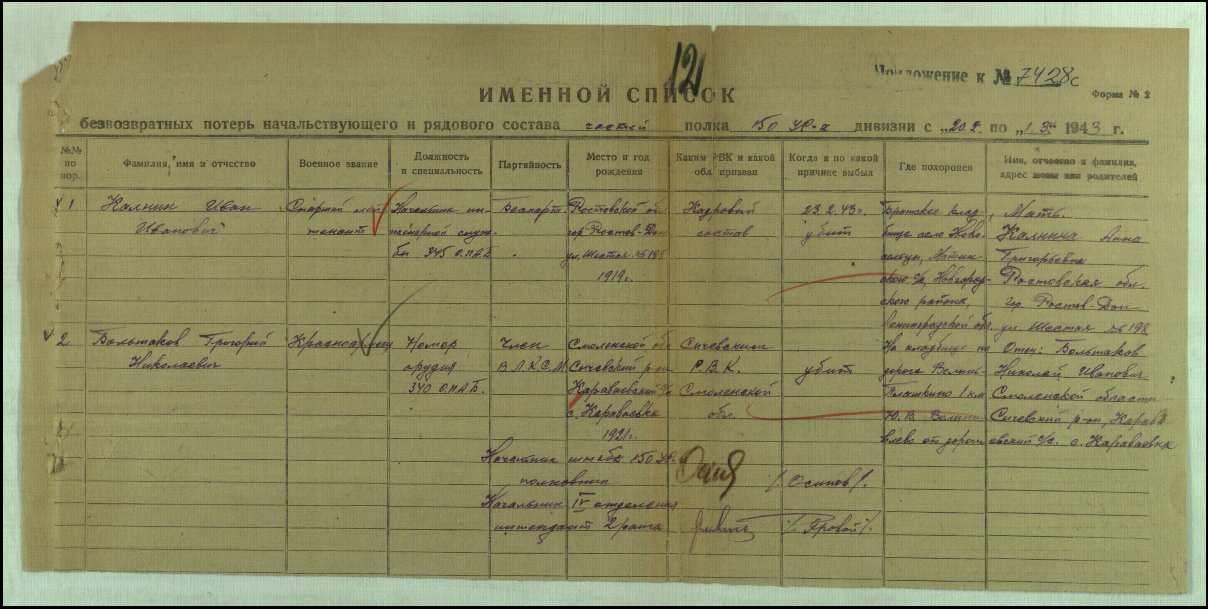 12
Приложение к № 7428с
Форма № 2
ИМЕННОЙ СПИСОК
безвозвратных потерь начальствующего и рядового состава частей полка 150 УР-а дивизии с „20.2. по „1.3." 1943 г.
№№ по пор.
Фамилия, имя и отчество
Военное звание
Должность и специальность
Партийность
Место и год рождения
Каким РВК и какой обл. призван
Когда и по какой причине выбыл
Где похоронен
Имя, отчество и фамилия, адрес жены или родителей
1 Калнин Иван Старший лей- Начальник ин- Беспарт. Ростовской об. Кадровый 23.2.43г. Братское клад- Мать
Иванович тенант женерной служ- гор. Ростов-Дон состав убит бище село Ново- Калнина Анна
бы 345 О.П.А.Б ул. Шестая № 198 Григорьевна
1919г. ского с/с, Ростовская обл.
ского района, гор. Ростов-Дон
Ленинградской обл. ул. Шестая № 198
2. Большаков Григорий Красноармеец Номер Член Смоленской обл. Сычевским На кладбище по Отец: Большаков
Николаевич орудия В.Л.К.С.М Сычевский р-он Р.В.К. убит дороге Николай Иванович
340 О.П.А.Б. Караваевский с/с Смоленской 1 км Смоленской области
с. Караваевка обл. Ю.В. Сычевский р-он, Карава
1921г. влево от дороги евский с/с. с. Караваевка
Начальник штаба 150 УР-
полковник /Осипов/.
Начальник IV отделения
интендант 2 ранга /Провой/.